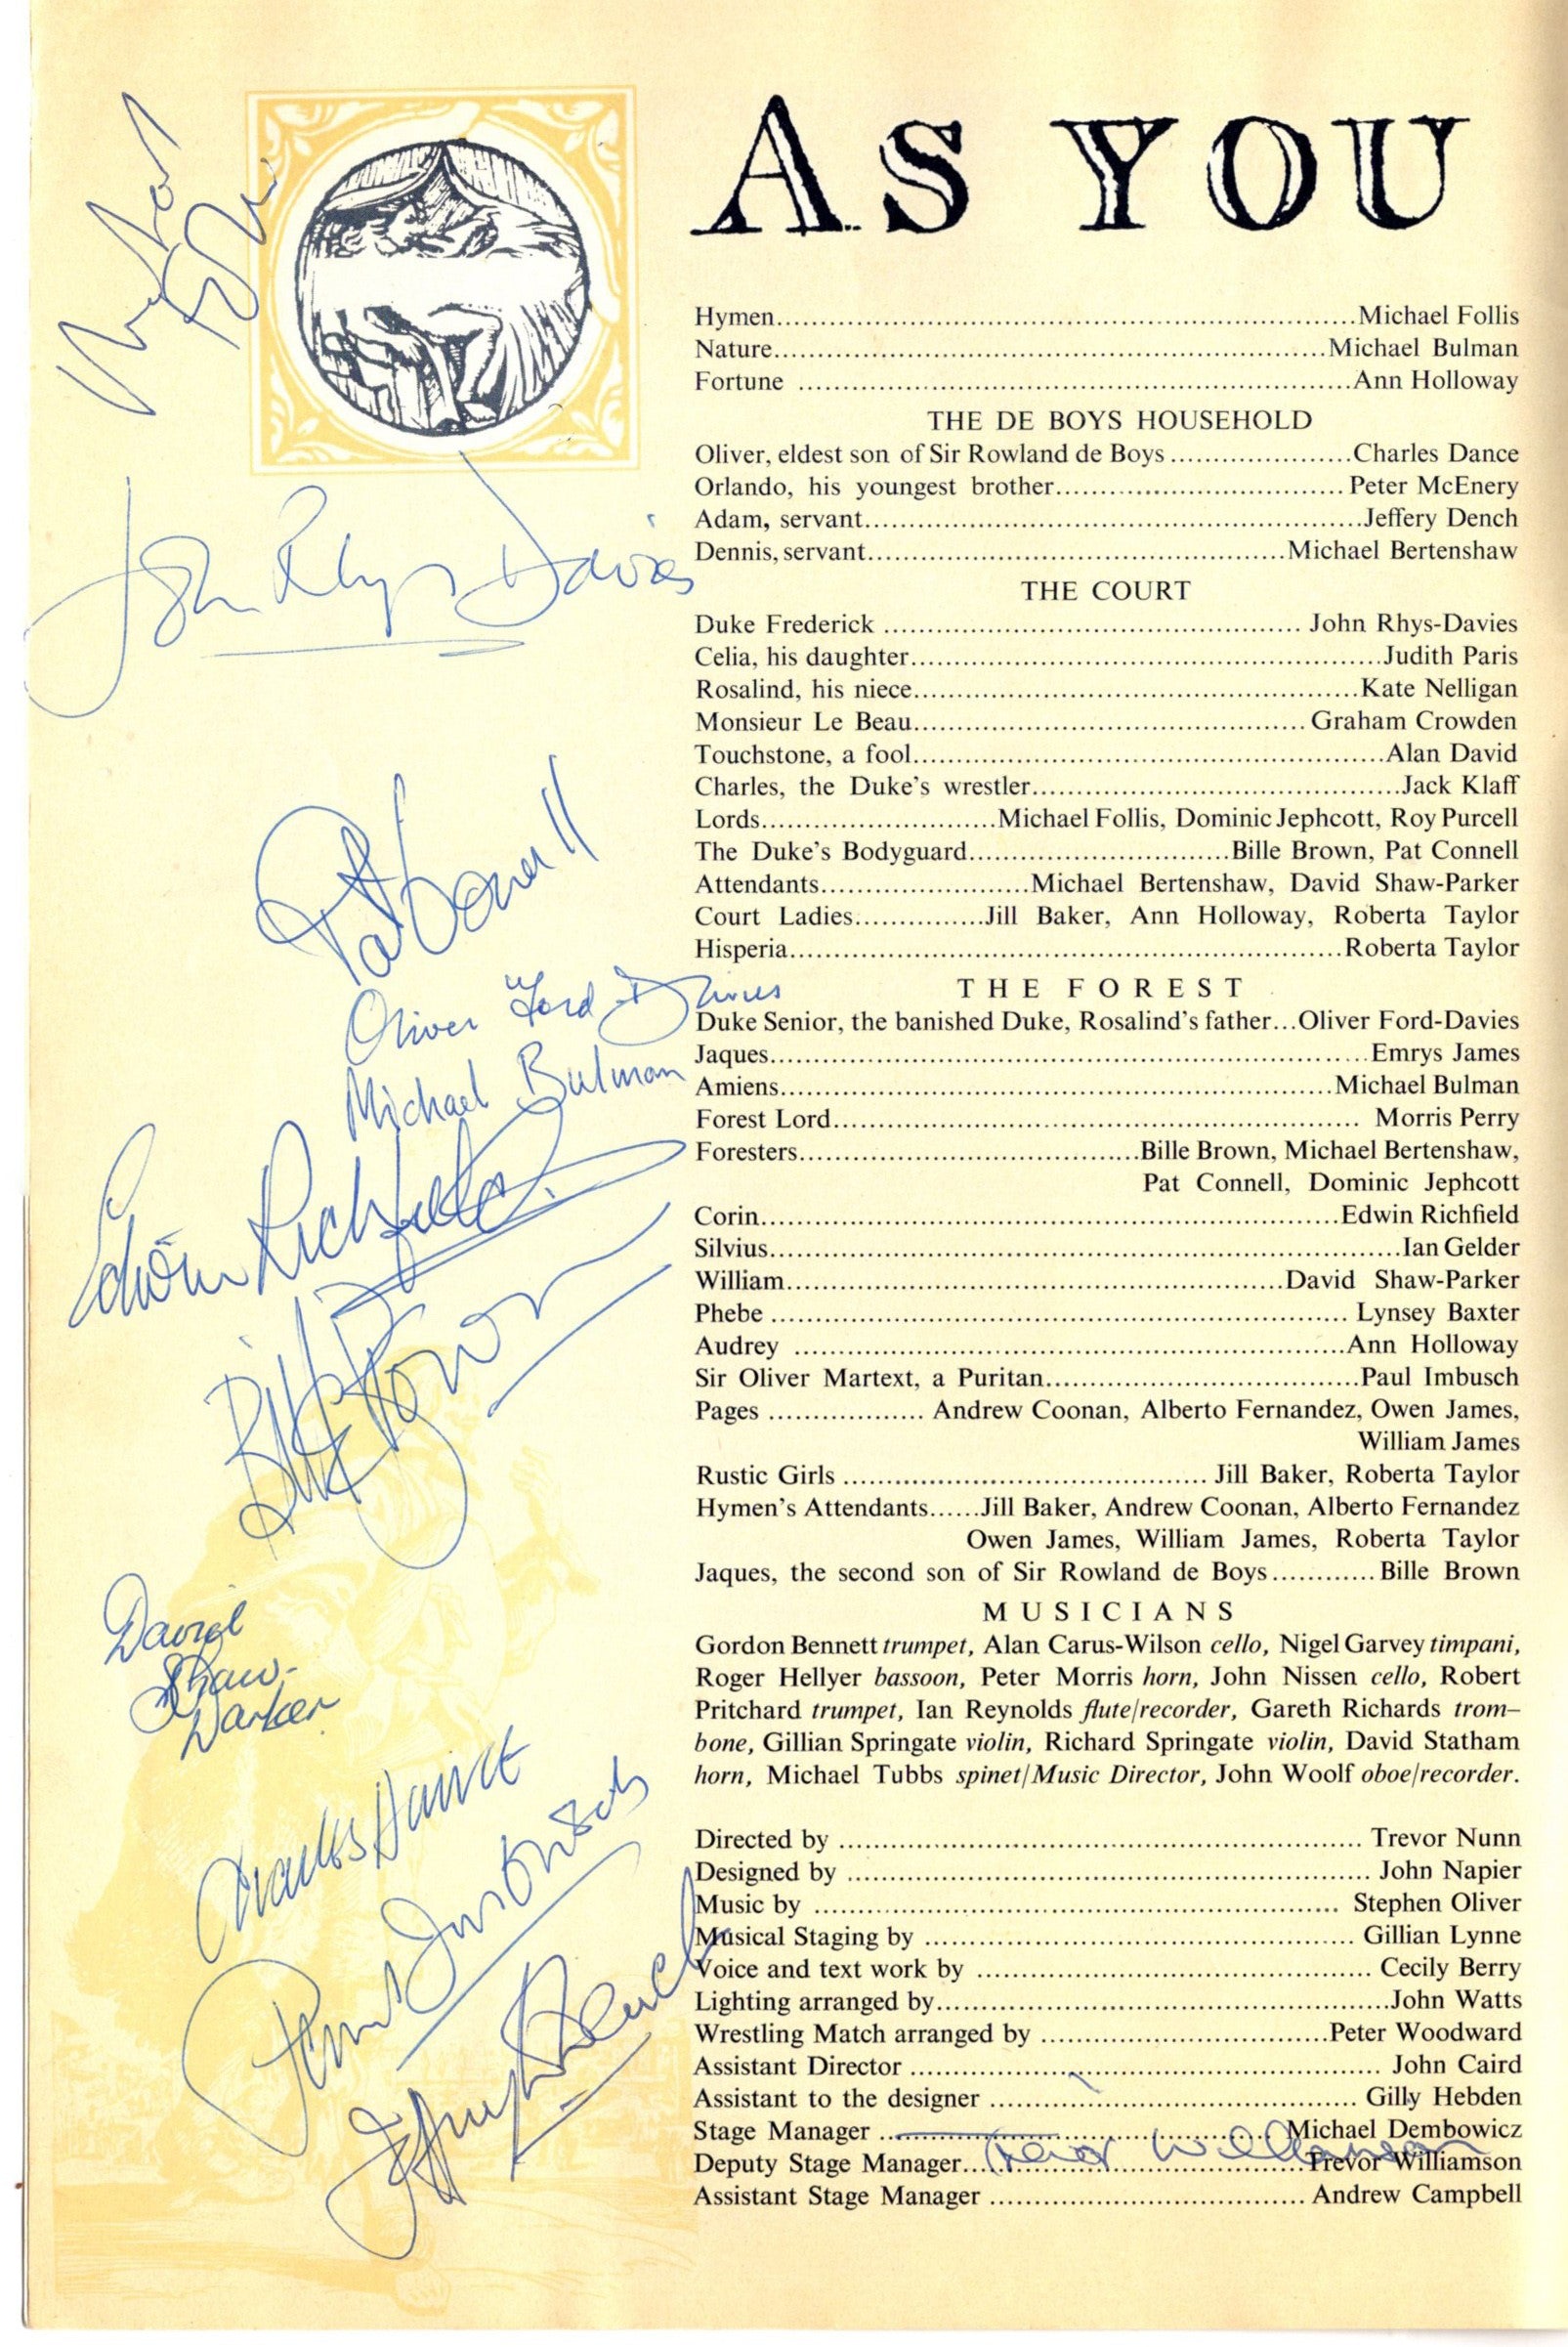 AS YOU
Hymen.....Michael Follis
Nature.....Michael Bulman
Fortune .....Ann Holloway
THE DE BOYS HOUSEHOLD
Oliver, eldest son of Sir Rowland de Boys.....Charles Dance
Orlando, his youngest brother.....Peter McEnery
Adam, servant.....Jeffery Dench
Dennis, servant.....Michael Bertenshaw
John Rhys Davies
THE COURT
Duke Frederick ..... John Rhys-Davies
Celia, his daughter.....Judith Paris
Rosalind, his niece.....Kate Nelligan
Monsieur Le Beau..... Graham Crowden
Touchstone, a fool.....Alan David
Charles, the Duke's wrestler.....Jack Klaff
Lords.....Michael Follis, Dominic Jephcott, Roy Purcell
The Duke's Bodyguard.....Bille Brown, Pat Connell
Attendants.....Michael Bertenshaw, David Shaw-Parker
Court Ladies.....Jill Baker, Ann Holloway, Roberta Taylor
Hisperia.....Roberta Taylor
Pat Connell
THE FOREST
Oliver Ford-Davies
Duke Senior, the banished Duke, Rosalind's father...Oliver Ford-Davies
Jaques.....Emrys James
Michael Bulman
Amiens.....Michael Bulman
Forest Lord..... Morris Perry
Foresters.....Bille Brown, Michael Bertenshaw,
Pat Connell, Dominic Jephcott
Edwin Richfield
Corin.....Edwin Richfield
Silvius.....Ian Gelder
William.....David Shaw-Parker
Phebe ..... Lynsey Baxter
Audrey .....Ann Holloway
Sir Oliver Martext, a Puritan.....Paul Imbusch
Bille Brown
Pages ..... Andrew Coonan, Alberto Fernandez, Owen James,
William James
Rustic Girls ..... Jill Baker, Roberta Taylor
Hymen's Attendants......Jill Baker, Andrew Coonan, Alberto Fernandez
Owen James, William James, Roberta Taylor
Jaques, the second son of Sir Rowland de Boys..... Bille Brown
MUSICIANS
David
Shaw-
Parker
Gordon Bennett trumpet, Alan Carus-Wilson cello, Nigel Garvey timpani,
Roger Hellyer bassoon, Peter Morris horn, John Nissen cello, Robert
Pritchard trumpet, Ian Reynolds flute/recorder, Gareth Richards trom–
bone, Gillian Springate violin, Richard Springate violin, David Statham
horn, Michael Tubbs spinet/Music Director, John Woolf oboe/recorder.
Charles Dance
Directed by ..... Trevor Nunn
Designed by ..... John Napier
Music by ..... Stephen Oliver
Musical Staging by ..... Gillian Lynne
Voice and text work by ..... Cecily Berry
Lighting arranged by.....John Watts
Wrestling Match arranged by .....Peter Woodward
Jeffery Dench
Assistant Director ..... John Caird
Assistant to the designer ..... Gilly Hebden
Stage Manager .....Michael Dembowicz
Trevor Williamson
Deputy Stage Manager.....Trevor Williamson
Assistant Stage Manager ..... Andrew Campbell